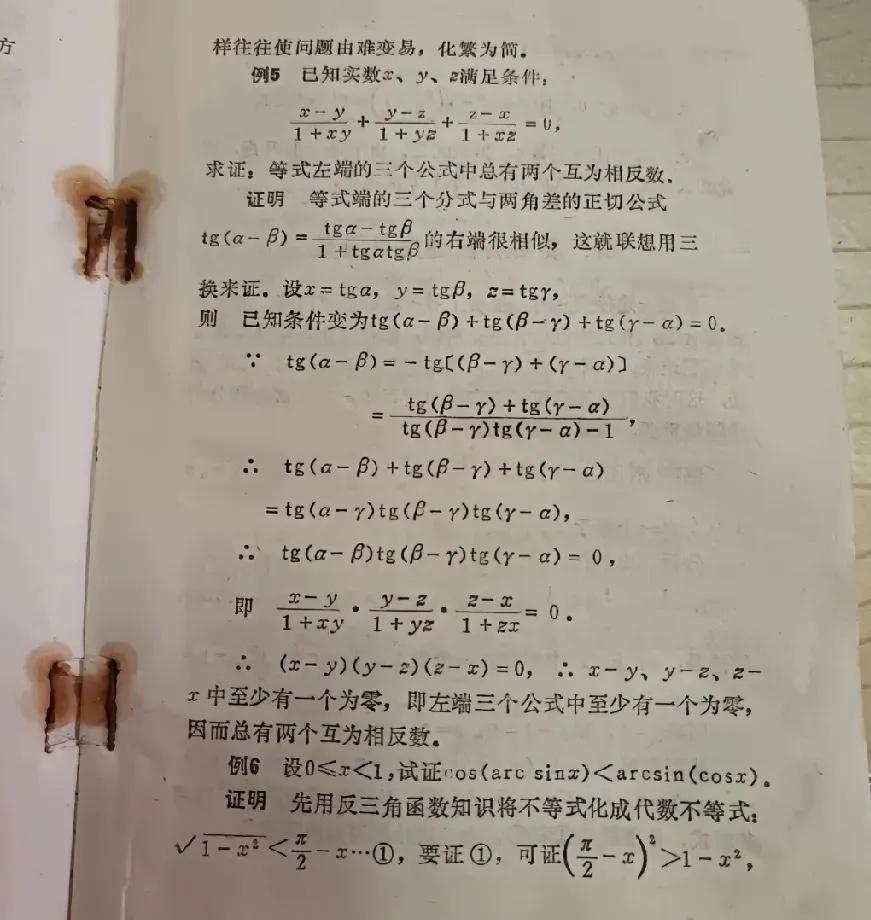 方
样往往使问题由难变易，化繁为简。
例5 已知实数x、y、z满足条件：
\frac{x-y}{1+xy}+\frac{y-z}{1+yz}+\frac{z-x}{1+xz}=0,
求证：等式左端的三个公式中总有两个互为相反数．
证明 等式端的三个分式与两角差的正切公式
tg(α-β)=\frac{tgα-tgβ}{1+tgαtgβ}的右端很相似，这就联想用三
换来证。设x=tgα，y=tgβ，z=tgγ，
则 已知条件变为tg(α-β)+tg(β-γ)+tg(γ-α)=0．
∵ tg(α-β)=-tg[(β-γ)+(γ-α)]
=\frac{tg(β-γ)+tg(γ-α)}{tg(β-γ)tg(γ-α)-1}，
∴ tg(α-β)+tg(β-γ)+tg(γ-α)
=tg(α-γ)tg(β-γ)tg(γ-α)，
∴ tg(α-β)tg(β-γ)tg(γ-α)=0，
即 \frac{x-y}{1+xy}·\frac{y-z}{1+yz}·\frac{z-x}{1+zx}=0．
∴ (x-y)(y-z)(z-x)=0，∴ x-y、y-z、z-
x中至少有一个为零，即左端三个公式中至少有一个为零，
因而总有两个互为相反数。
例6 设0≤x<1,试证cos(arc sinx)<arcsin(cosx)。
证明 先用反三角函数知识将不等式化成代数不等式：
\sqrt{1-x²}<\frac{π}{2}-x…①，要证①，可证(\frac{π}{2}-x)²>1-x²，